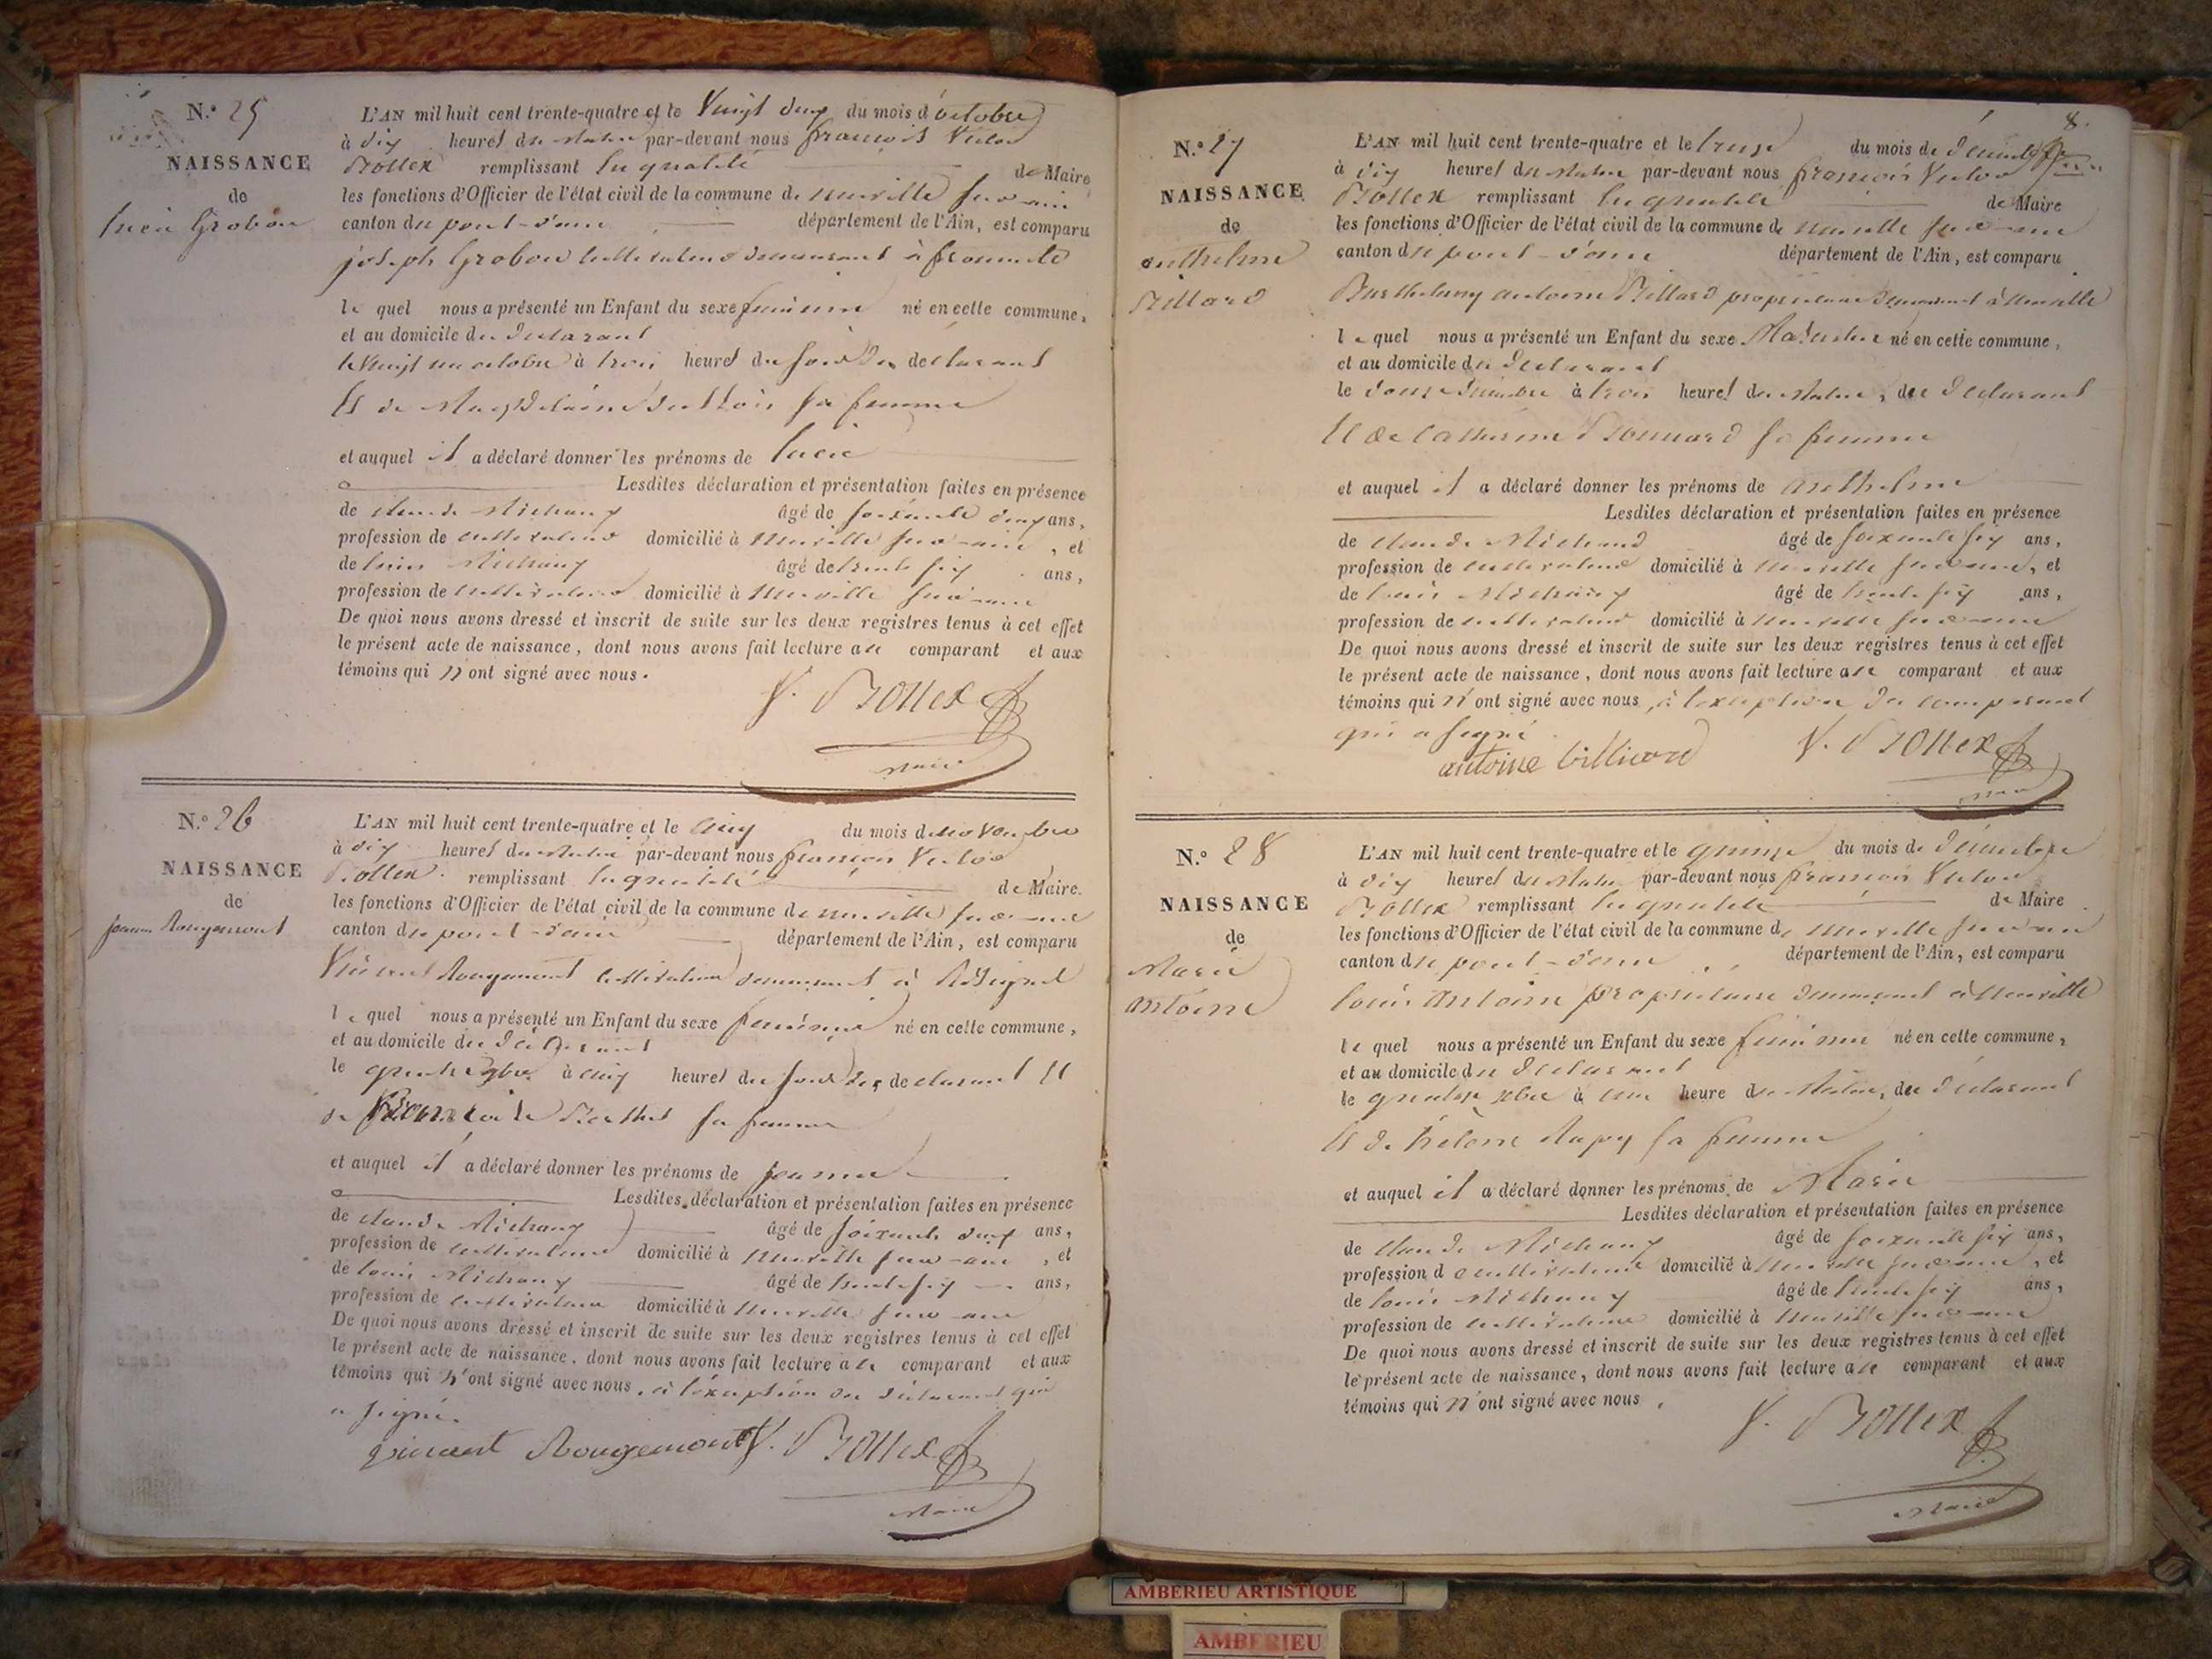 N.° 25
NAISSANCE
de
lucie Grobon
L'AN mil huit cent trente-quatre et le Vingt deux du mois d'octobre
à dix heures du matin par-devant nous françois Victor
Brottex remplissant la qualité de Maire
les fonctions d'Officier de l'état civil de la commune de neuville sur ain
canton du pont-d'ain département de l'Ain, est comparu
joseph Grobon cultivateur demeurant à
le quel nous a présenté un Enfant du sexe feminin né en cette commune,
et au domicile du declarant
le vingt un octobre à trois heures du soir du declarant
Et de sa femme
et auquel il a déclaré donner les prénoms de lucie
Lesdites déclaration et présentation faites en présence
de claude Michaux âgé de soixante deux ans,
profession de cultivateur domicilié à Neuville sur-ain, et
de louis Michaux âgé de trente six ans,
profession de cultivateur domicilié à Neuville sur-ain
De quoi nous avons dressé et inscrit de suite sur les deux registres tenus à cet effet
le présent acte de naissance, dont nous avons fait lecture au comparant et aux
témoins qui n'ont signé avec nous.
V. Brottex
Maire
N.° 26
NAISSANCE
de
jeanne Rougemont
L'AN mil huit cent trente-quatre et le cinq du mois de novembre
à dix heures du matin par-devant nous françois Victor
Brottex remplissant la qualité de Maire.
les fonctions d'Officier de l'état civil de la commune de neuville sur-ain
canton du pont-d'ain département de l'Ain, est comparu
Vincent Rougemont cultivateur demeurant à
le quel nous a présenté un Enfant du sexe feminin né en cette commune,
et au domicile du déclarant
le quatre 9bre à cinq heures du soir du declarant Et
de sa femme
et auquel il a déclaré donner les prénoms de jeanne
Lesdites déclaration et présentation faites en présence
de claude Michaux âgé de soixante deux ans,
profession de cultivateur domicilié à Neuville sur-ain, et
de louis Michaux âgé de trente six ans,
profession de cultivateur domicilié à Neuville sur-ain
De quoi nous avons dressé et inscrit de suite sur les deux registres tenus à cet effet
le présent acte de naissance, dont nous avons fait lecture au comparant et aux
témoins qui n'ont signé avec nous, à l'exception du déclarant qui
a signé.
Rougemont V. Brottex
Maire
8.
N.° 27
NAISSANCE
de
anthelme
Billard
L'AN mil huit cent trente-quatre et le treize du mois de décembre
à dix heures du matin par-devant nous françois Victor
Brottex remplissant la qualité de Maire
les fonctions d'Officier de l'état civil de la commune de neuville sur-ain
canton du pont-d'ain département de l'Ain, est comparu
Barthelemy antoine Billard proprietaire demeurant à Neuville
le quel nous a présenté un Enfant du sexe Masculin né en cette commune,
et au domicile du declarant
le douze décembre à trois heures du matin, du declarant
Et de catherine sa femme
et auquel il a déclaré donner les prénoms de anthelme
Lesdites déclaration et présentation faites en présence
de claude Michaud âgé de soixante six ans,
profession de cultivateur domicilié à Neuville sur-ain, et
de louis Michaux âgé de trente six ans,
profession de cultivateur domicilié à Neuville sur-ain
De quoi nous avons dressé et inscrit de suite sur les deux registres tenus à cet effet
le présent acte de naissance, dont nous avons fait lecture au comparant et aux
témoins qui n'ont signé avec nous, à l'exception du comparant
qui a signé
antoine billiard V. Brottex
Maire
N.° 28
NAISSANCE
de
Marie
Antoine
L'AN mil huit cent trente-quatre et le quinze du mois de décembre
à dix heures du matin par-devant nous françois Victor
Brottex remplissant la qualité de Maire
les fonctions d'Officier de l'état civil de la commune de neuville sur-ain
canton du pont-d'ain département de l'Ain, est comparu
louis Antoine proprietaire demeurant à Neuville
le quel nous a présenté un Enfant du sexe feminin né en cette commune,
et au domicile du declarant
le quatorze xbre à une heure du Matin, du declarant
Et de hélene sa femme
et auquel il a déclaré donner les prénoms de Marie
Lesdites déclaration et présentation faites en présence
de claude Michaux âgé de soixante six ans,
profession de cultivateur domicilié à Neuville sur-ain, et
de louis Michaux âgé de trente six ans,
profession de cultivateur domicilié à Neuville sur-ain
De quoi nous avons dressé et inscrit de suite sur les deux registres tenus à cet effet
le présent acte de naissance, dont nous avons fait lecture au comparant et aux
témoins qui n'ont signé avec nous.
V. Brottex
Maire
AMBERIEU ARTISTIQUE
AMBERIEU